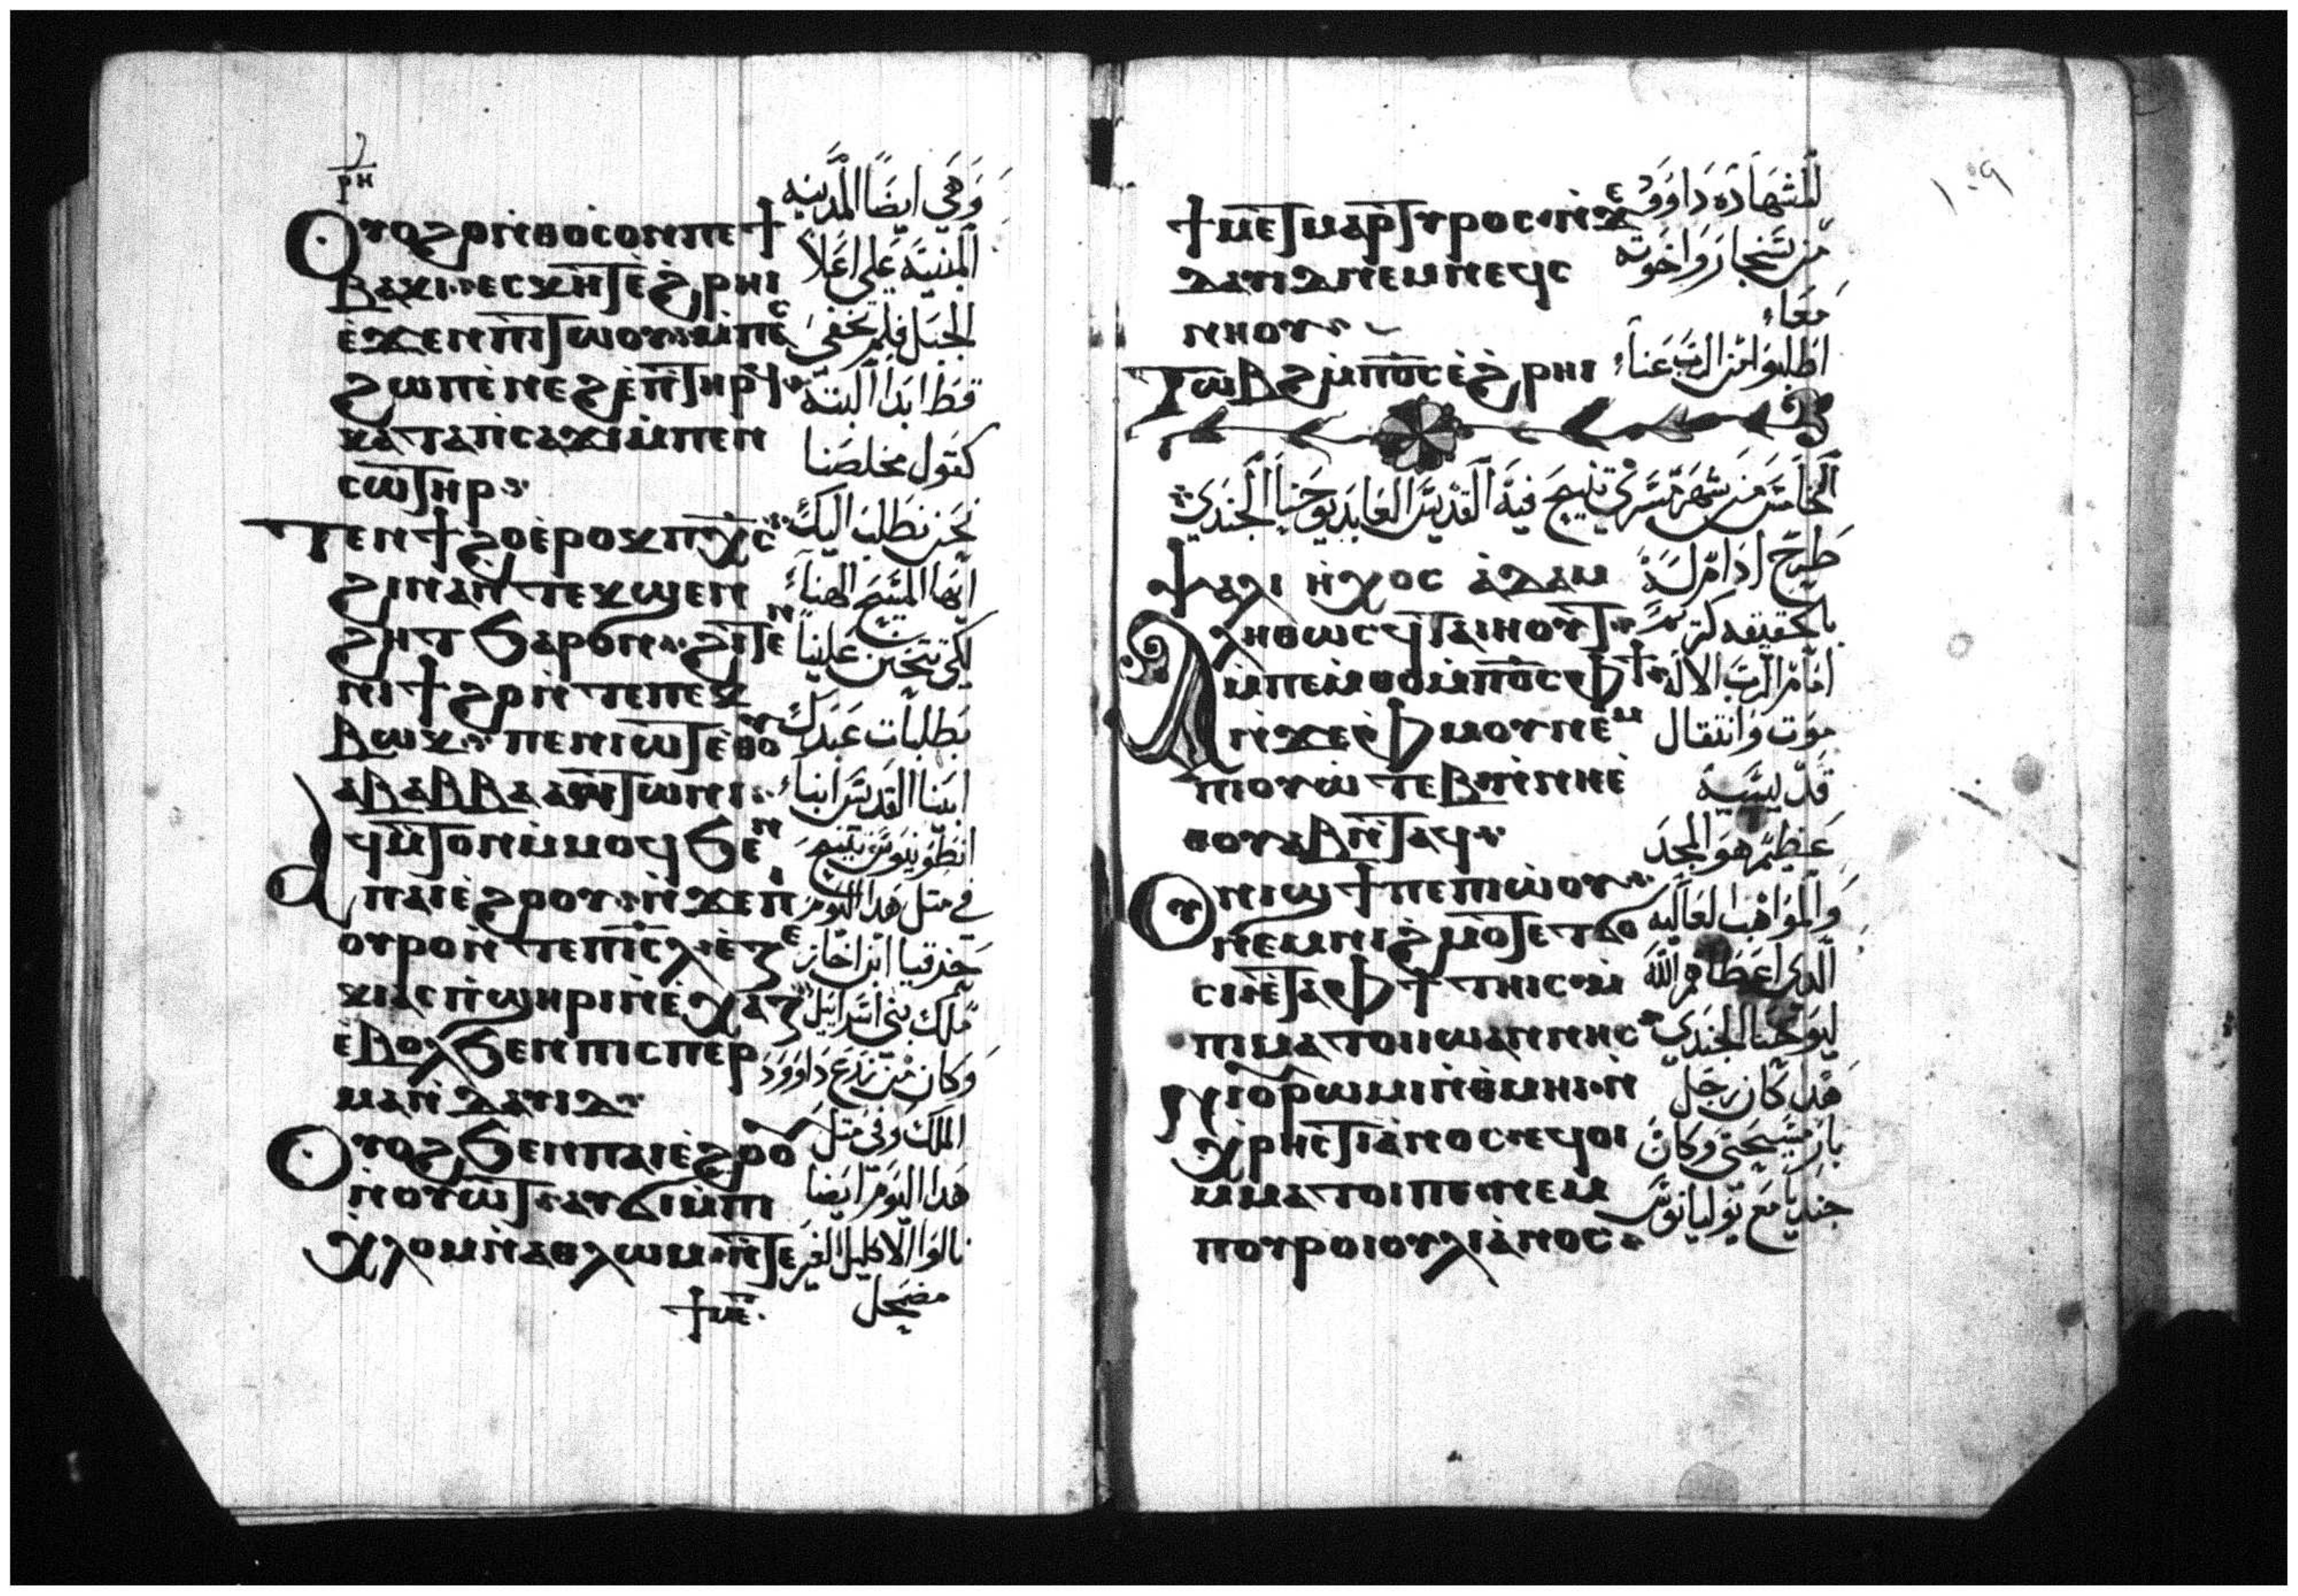 ⲣⲏ
Ⲟⲩⲟϩ ⲟⲛ ⲛ̀ⲑⲟⲥ ⲟⲛ ⲡⲉ ϯ
ⲃⲁⲕⲓ ⲉⲥⲭⲏ ⲧⲉ ϩ̀ⲣⲏⲓ
ⲉ̀ϫⲉⲛ ⲡⲓⲧⲱⲟⲩ ⲙ̀ⲡⲉⲥ
ϩⲱⲡ ⲉ̀ⲛⲉϩ ⲉ̀ⲡⲧⲏⲣϥ
ⲕⲁⲧⲁ ⲡ̀ⲥⲁϫⲓ ⲙ̀ⲡⲉⲛ
ⲥⲱⲧⲏⲣ
Ⲧⲉⲛϯϩⲟ ⲉ̀ⲣⲟⲕ ⲡⲭ̅ⲥ̅
ϩⲓⲛⲁ ⲛ̀ⲧⲉⲕϣⲉⲛ
ϩⲏⲧ ϧⲁⲣⲟⲛ ϩⲓⲧⲉⲛ
ⲛⲓϯϩⲟ ⲛ̀ⲧⲉ ⲡⲉⲕ
ⲃⲱⲕ ⲡⲉⲛⲓⲱⲧ ⲉ̀ⲑⲟⲩ
ⲁⲃ ⲁⲃⲃⲁ ⲁⲛⲧⲱⲛⲓ
ⲁϥⲙ̀ⲧⲟⲛ ⲙ̀ⲙⲟϥ ϧⲉⲛ
ⲡⲁⲓⲉ̀ϩⲟⲟⲩ ⲛ̀ϫⲉ ⲡ̀
ⲟⲩⲣⲟ ⲛ̀ⲧⲉ ⲡⲓⲥ̅ⲗ̅ ⲉ̀ⲍⲉ
ⲕⲓⲁⲥ ⲡ̀ϣⲏⲣⲓ ⲛ̀ⲉ̀ⲭⲁⲍ
ⲉ̀ⲃⲟⲗ ϧⲉⲛ ⲡⲓⲥⲡⲉⲣ
ⲙⲁ ⲛ̀ⲇⲁⲩⲓⲇ
Ⲟⲩⲟϩ ϧⲉⲛ ⲡⲁⲓⲉ̀ϩⲟⲟ
ⲛ̀ⲟⲩⲱⲧ ⲁⲩϭⲓ ⲙ̀ⲡⲓ
ⲭⲗⲟⲙ ⲛ̀ⲁⲑⲗⲱⲙ ⲛ̀ⲧⲉ
ϯⲙⲉ
وهي ايضا المدينه
المبنيه علي اعلا
الجبل فلم تخفي
قط ابدا البته
كقول مخلصنا
نحن نطلب اليك
ايها المسيح الهنا
لكي تتحنن علينا
بطلبات عبدك
ابينا القديس انبا
انطونيوس تنيح
في مثل هدا اليوم
حزقيا ابن اخاز
ملك بني اسراييل
وكان من زرع داوود
الملك وفي مثل
هدا اليوم ايضا
نالوا الاكليل الغير
مضمحل
١٥٩
ϯⲙⲉⲧⲙⲁⲣⲧⲩⲣⲟⲥ ⲛ̀ϫⲉ
ⲇⲁⲩⲓⲇ ⲛⲉⲙ ⲛⲉϥⲥ
ⲛⲏⲟⲩ
Ⲧⲱⲃϩ ⲙ̀ⲡⲟ̅ⲥ̅ ⲉ̀ϩ̀ⲣⲏⲓ
للشهاده داوود
من سنجار واخوته
معا
اطلبوا من الرب عنا
الخامس من شهر مسري تنيح فيه القديس العابد يوحنا الجندي
ⲯⲁⲗⲓ ⲏ̀ⲭⲟⲥ ⲁ̀ⲇⲁⲙ
Ⲁⲗⲏⲑⲱⲥ ϥ̀ⲧⲁⲓⲏⲟⲩⲧ
ⲙ̀ⲡⲉⲙ̀ⲑⲟ ⲙ̀ⲡⲟ̅ⲥ̅ ⲫϯ
ⲛ̀ϫⲉ ⲫ̀ⲙⲟⲩ ⲛⲉⲙ
ⲡⲓⲟⲩⲱⲧⲉⲃ ⲛ̀ⲛⲏⲉ̀
ⲑⲟⲩⲁⲃ ⲛ̀ⲧⲁϥ
Ⲟⲩⲛⲓϣϯ ⲡⲉ ⲡⲓⲱ̀ⲟⲩ
ⲛⲉⲙ ⲛⲓϩ̀ⲙⲟⲧ ⲉⲧϭⲟ
ⲥⲓ ⲛ̀ⲉⲧⲁ ⲫϯ ⲧⲏⲓⲥ ⲙ̀
ⲡⲓⲙⲁⲧⲟⲓ ⲓⲱⲁⲛⲛⲏⲥ
ⲛⲉⲟⲩⲣⲱⲙⲓ ⲛ̀ⲑ̀ⲙⲏⲓ ⲛ̀
ⲭⲣⲏⲥⲧⲓⲁ̀ⲛⲟⲥ ⲛⲉϥⲟⲓ
ⲙ̀ⲙⲁⲧⲟⲓ ⲡⲉ ⲛⲉⲙ
ⲡⲟⲩⲣⲟ ⲓⲟⲩⲗⲓⲁ̀ⲛⲟⲥ
طرح ادام له
بالحقيقه كريم
امام الرب الاله
موت وانتقال
قديسيه
عظيم هو المجد
والمواهب العاليه
الدي اعطاهم الله
ليوحنا الجندي
هدا كان رجل
بار مسيحي وكان
جنديا مع يوليانوس